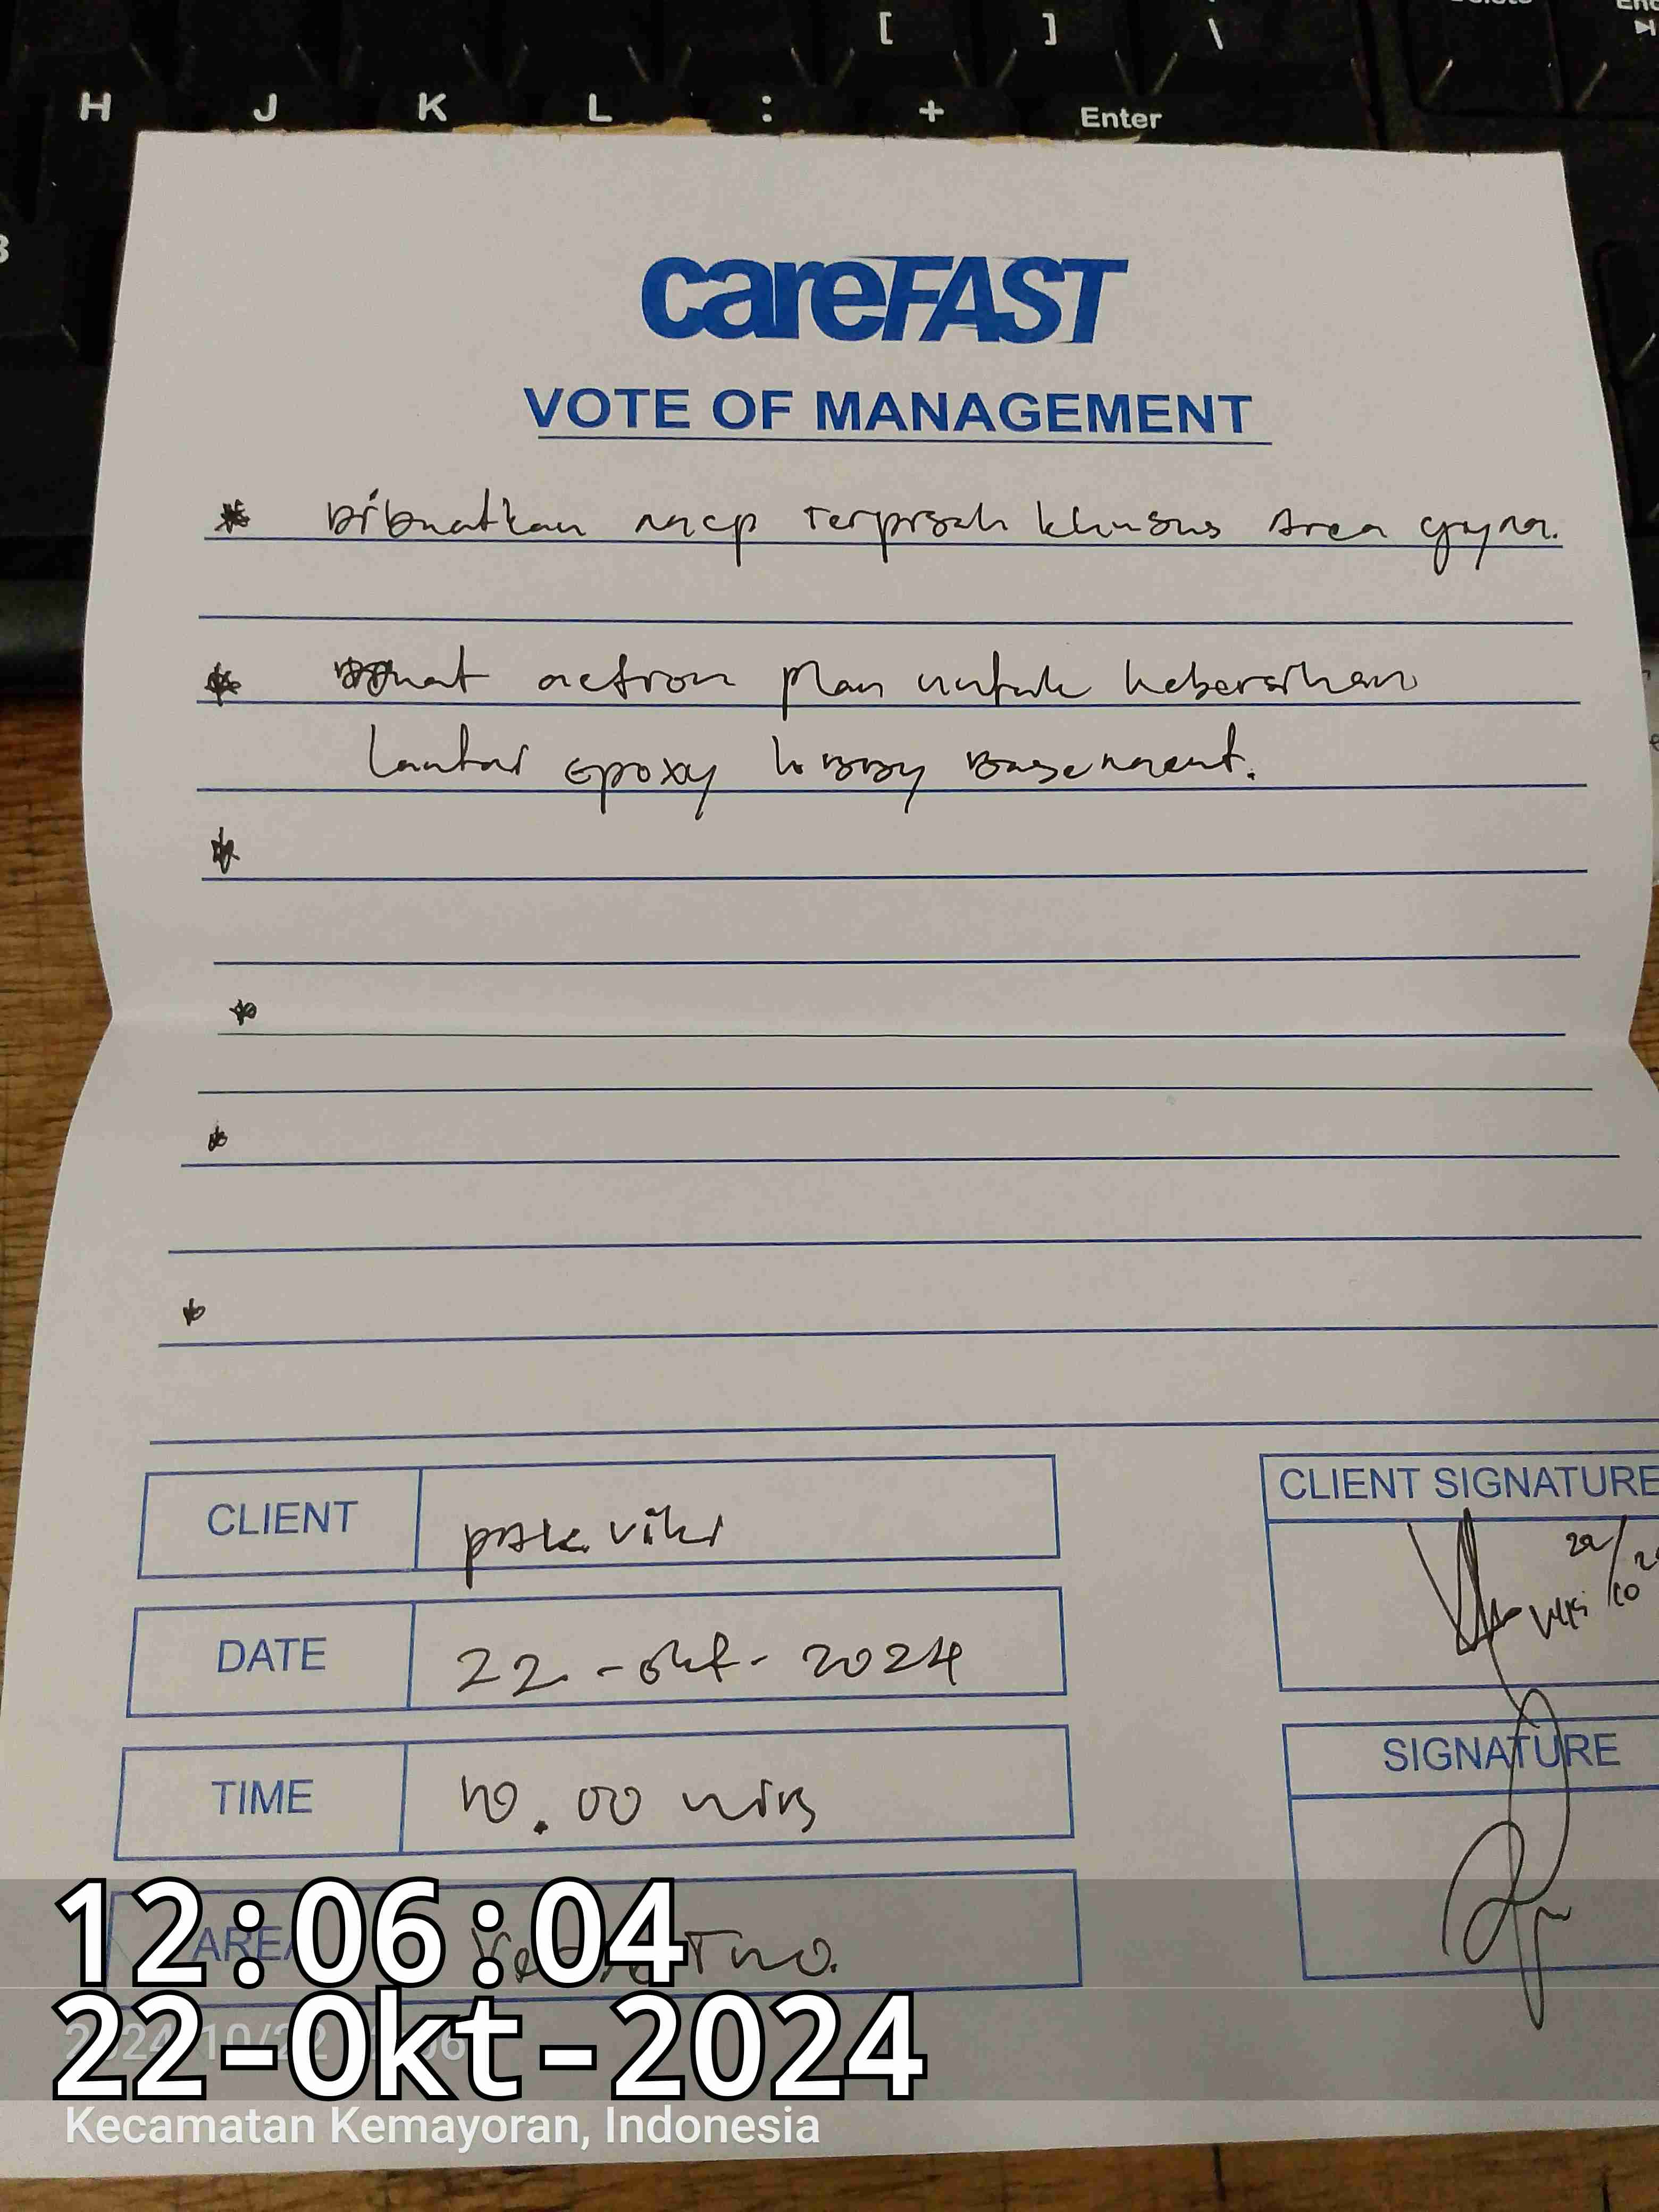 [ ] \
H J K L : + Enter
careFAST
VOTE OF MANAGEMENT
* Dibuatkan mcp Terpisah khusus Area gym.
* Buat action plan untuk kebersihan
lantai epoxy lobby Basement.
*
*
*
*
CLIENT pak viki
DATE 22 - okt - 2024
TIME 10.00 WIB
AREA
CLIENT SIGNATURE
22/10
viki
SIGNATURE
12:06:04
22-Okt-2024
Kecamatan Kemayoran, Indonesia